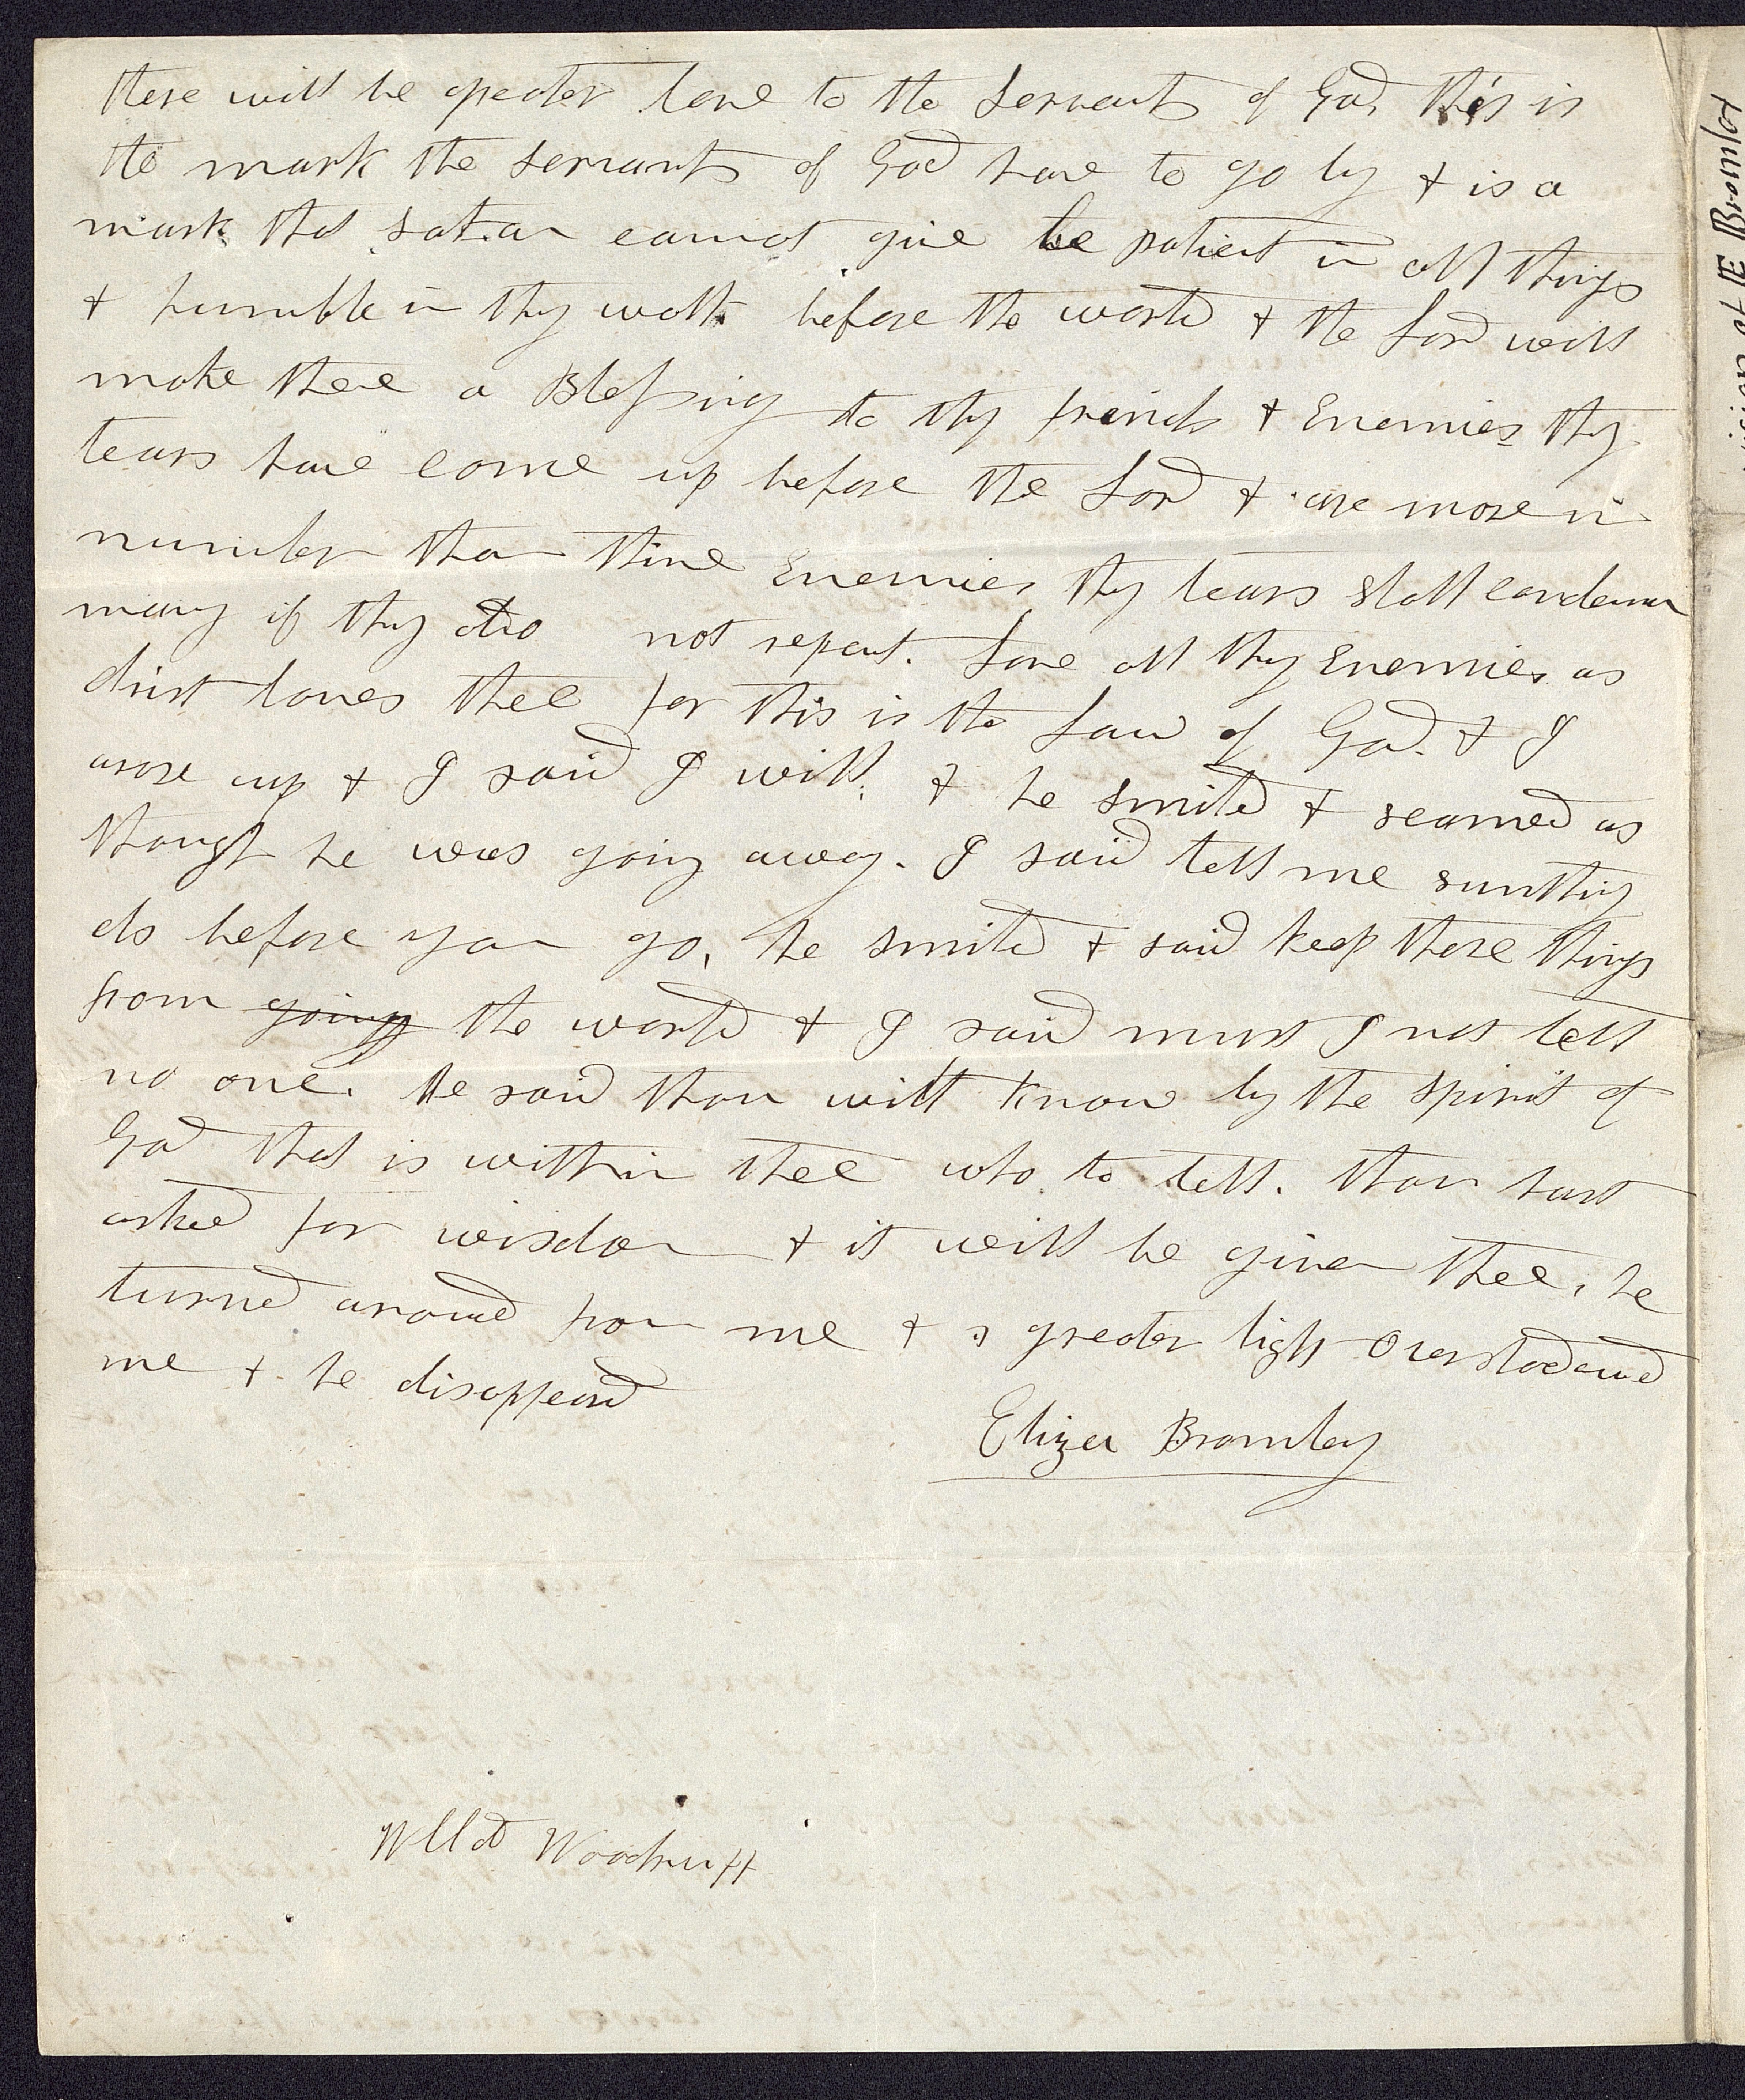 there will be greater love to the servants of God, this is
the mark the servants of God have to go by & is a
mark that satan cannot give be patient in all things
& humble in thy walk before the world & the Lord will
make thee a Blessing to thy frends & Enemies thy
tears have come up before the Lord & are more in
number than thine Enemies thy tears shall condemn
many if thy do not repent. Love all thy Enemies as
christ loves thee for this is the Law of God. & I
arose up & I said I will. & he smiled & seamed as
though he was going away. I said tell me sumthing
els before you go, he smiled & said keep these things
from going the world & I said must I not tell
no one. He said thou wilt know by the spirit of
God that is within thee who to tell. thou hast
asked for wisdom & it will be given thee, he
turned around from me & a greater light overshadowed
me & he disappeard
Eliza Bromley
Willd Woodruff
vision of E Bromley